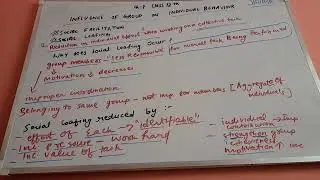 CLASS 12th
INFLUENCE OF GROUP ON INDIVIDUAL BEHAVIOUR
SOCIAL FACILITATION
SOCIAL LOAFING
Reduction in individual effort when working on a collective task
Why does Social Loafing Occur?
group members - "less responsible" for overall task being performed
Motivation ↓ decreases
improper coordination
Belonging to same group - not imp for members [Aggregate of individuals]
Social loafing reduced by:-
- effort of each → "identifiable"
- Inc pressure - work hard
- Inc value of task
- individual → imp
contribution
- strengthen group
cohesiveness
motivation ↑